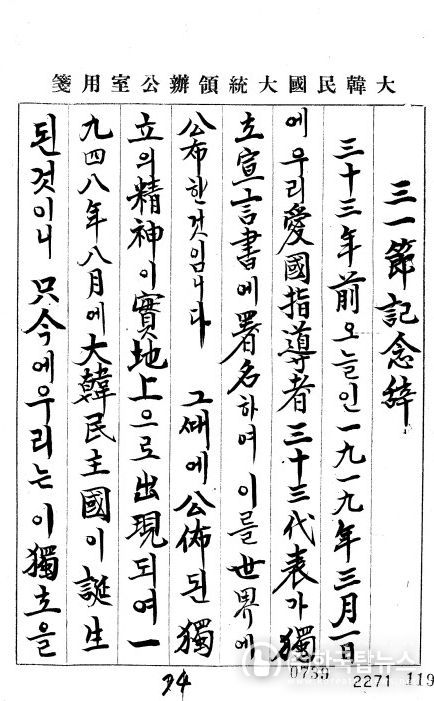 大韓民國大統領辦公室用箋
三一節記念辞
三十三年前오늘인一九一九年三月一日
에우리愛國指導者三十三代表가獨
立宣言書에署名하여이를世界에
公布한것입니다 그때에公佈된獨
立의精神이實地上으로出現되여一
九四八年八月에大韓民主國이誕生
된것이니 只今에우리는이獨立을
94
0739
2271 119
한국탑뉴스